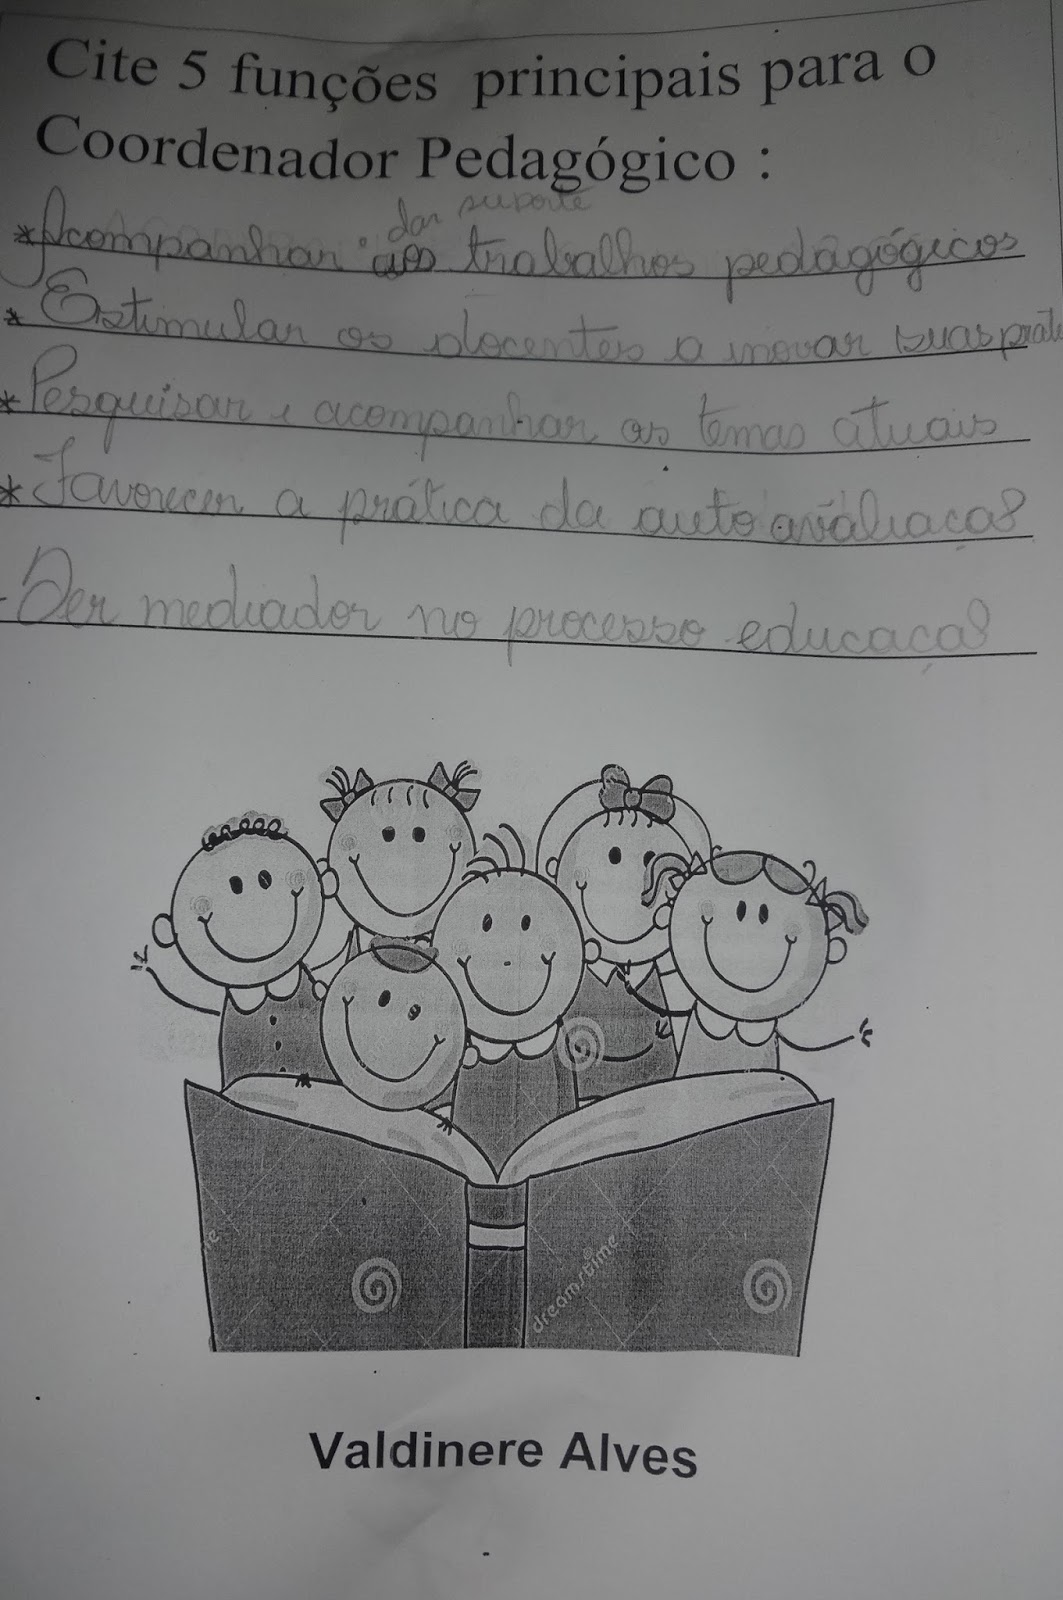 Cite 5 funções principais para o
Coordenador Pedagógico :
dar suporte
*Acompanhar aos trabalhos pedagógicos
* Estimular os docentes a inovar suas
* Pesquisar e acompanhar os temas atuais
* Favorecer a prática da auto avaliação
- Ser mediador no processo educação
dreamstime
Valdinere Alves